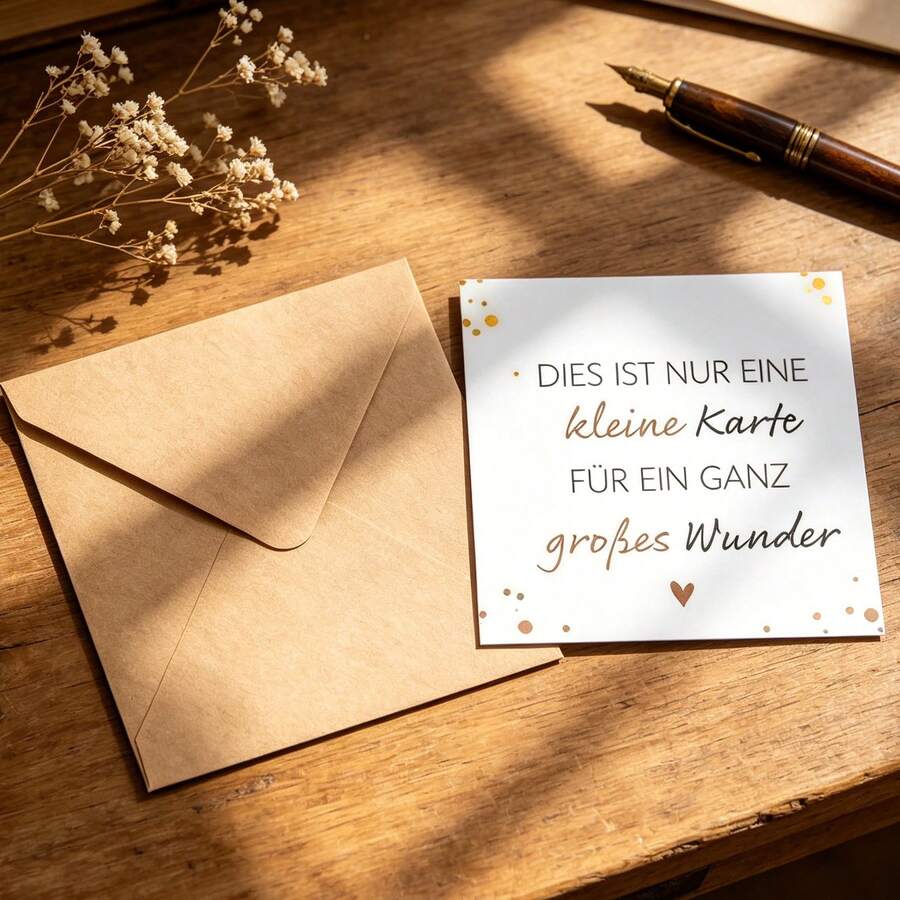 DIES IST NUR EINE
kleine Karte
FÜR EIN GANZ
großes Wunder